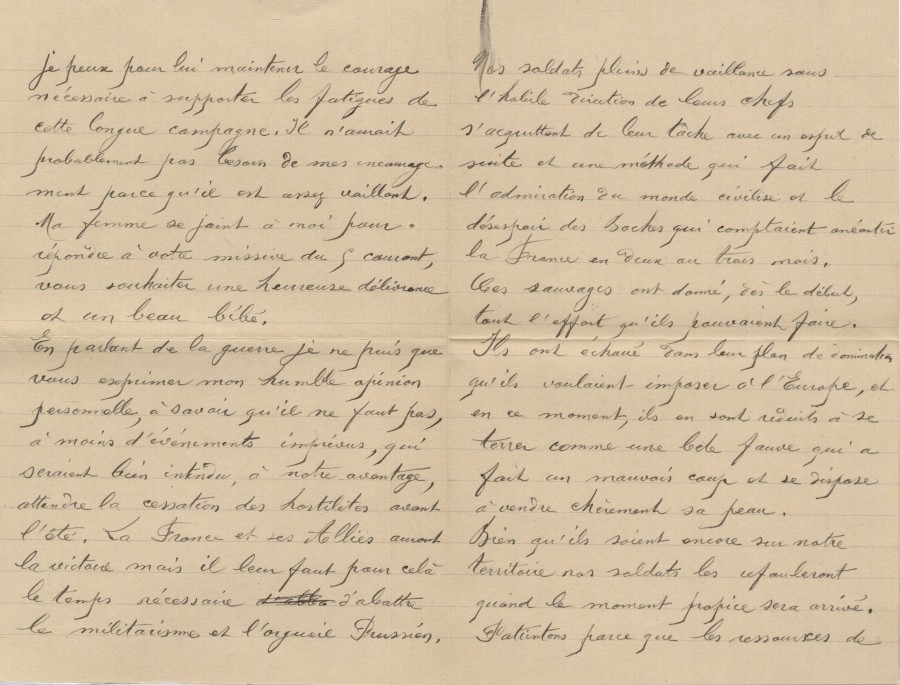 je peux pour lui maintenir le courage
nécessaire à supporter les fatigues de
cette longue campagne. Il n'aurait
probablement pas besoin de mes encourage-
ment parce qu'il est assez vaillant.
Ma femme se joint à moi pour
répondre à votre missive du 5 courant,
vous souhaiter une heureuse délivrance
et un beau bébé.
En parlant de la guerre je ne puis que
vous exprimer mon humble opinion
personnelle, à savoir qu'il ne faut pas,
à moins d'événements imprévus, qui
seraient bien intendu, à notre avantage,
attendre la cessation des hostilités avant
l'été. La France et ses Alliés auront
la victoire mais il leur faut pour celà
le temps nécessaire d'abattre
le militarisme et l'orgueil Prussien.
Nos soldats pleins de vaillance sous
l'habile direction de leurs chefs
s'acquittent de leur tâche avec un esprit de
suite et une méthode qui fait
l'admiration du monde civilisé et le
désespoir des Boches qui comptaient anéantir
la France en deux ou trois mois.
Ces sauvages ont donné, dès le début,
tout l'effort qu'ils pouvaient faire.
Ils ont échoué dans leur plan de domination
qu'ils voulaient imposer à l'Europe, et
en ce moment, ils en sont réduits à se
terrer comme une bête fauve qui a
fait un mauvais coup et se dispose
à vendre chèrement sa peau.
Bien qu'ils soient encore sur notre
territoire nos soldats les refouleront
quand le moment propice sera arrivé.
Patientons parce que les ressources de